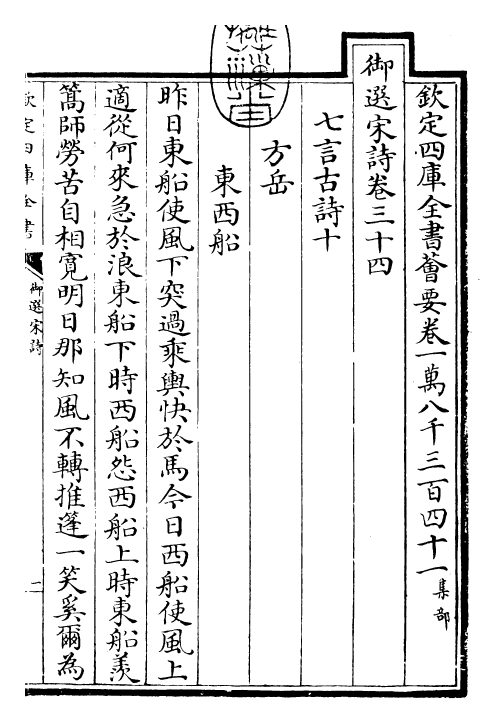 欽定四庫全書薈要卷一萬八千三百四十一集部
御選宋詩卷三十四
七言古詩十
方岳
東西船
昨日東船使風下突過乘輿快於馬今日西船使風上
適從何來急於浪東船下時西船怨西船上時東船羨
篙師勞苦自相寛明日那知風不轉推篷一笑奚爾為
欽定四庫全書
御選宋詩